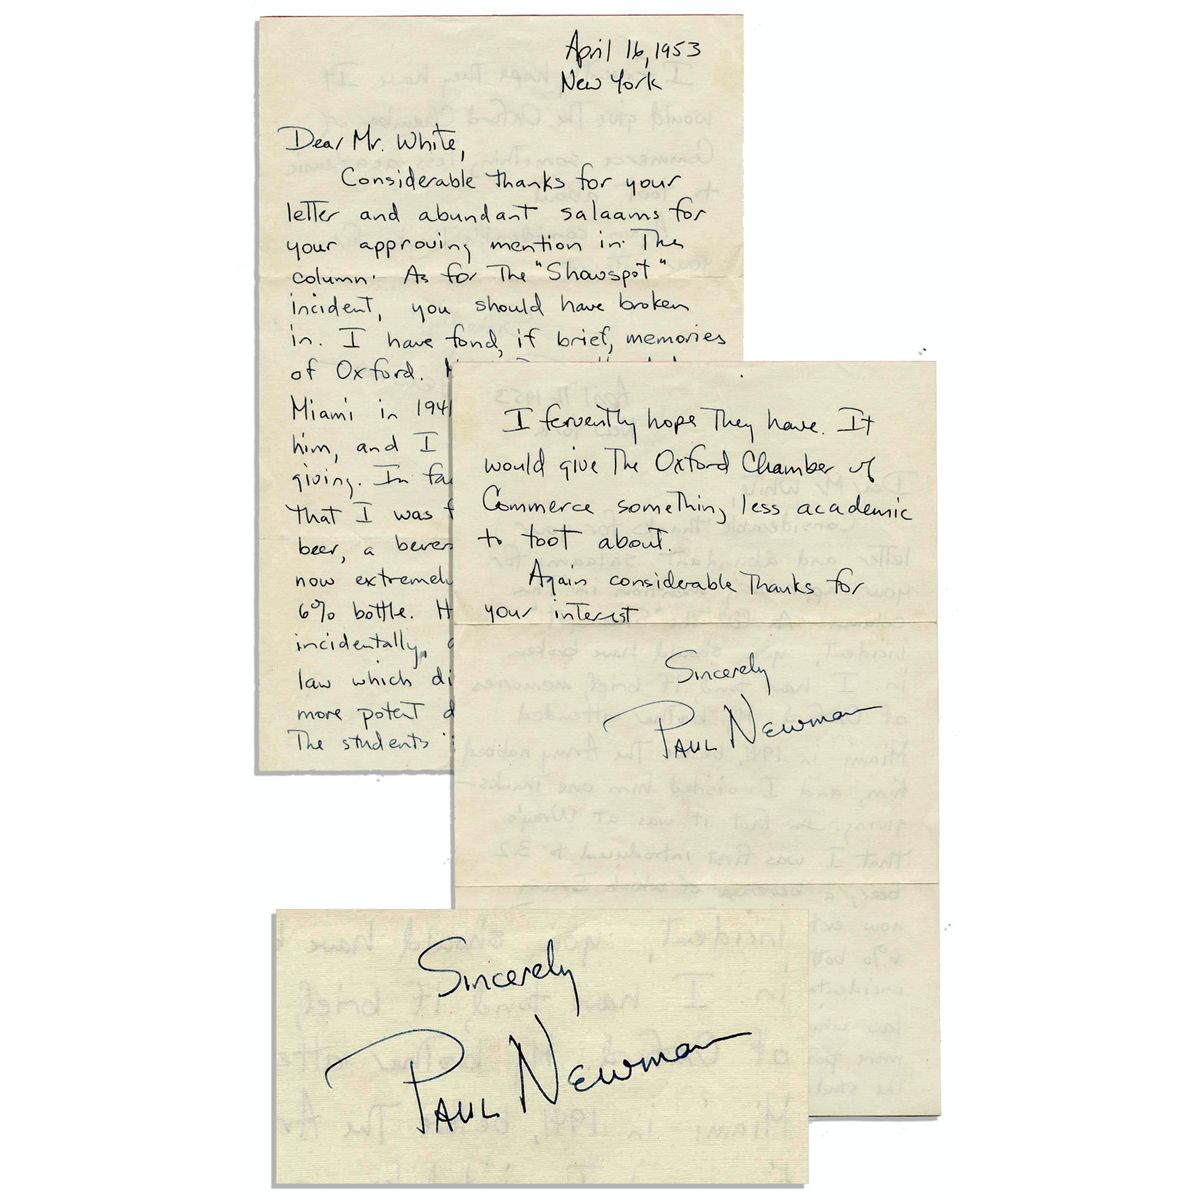 April 16, 1953
New York
Dear Mr. White,
Considerable thanks for your
letter and abundant salaams for
your approving mention in The
column. As for The "Showspot"
incident, you should have broken
in. I have fond, if brief, memories
of Oxford.
Miami in 194
him, and I
giving. In fa
That I was f
beer, a bever
now extremel
6% bottle. H
incidentally,
law which di
more potent d
The students
I fervently hope They have. It
would give The Oxford Chamber of
Commerce something less academic
to toot about.
Again considerable Thanks for
your interest
Sincerely
Paul Newman
Sincerely
Paul Newman